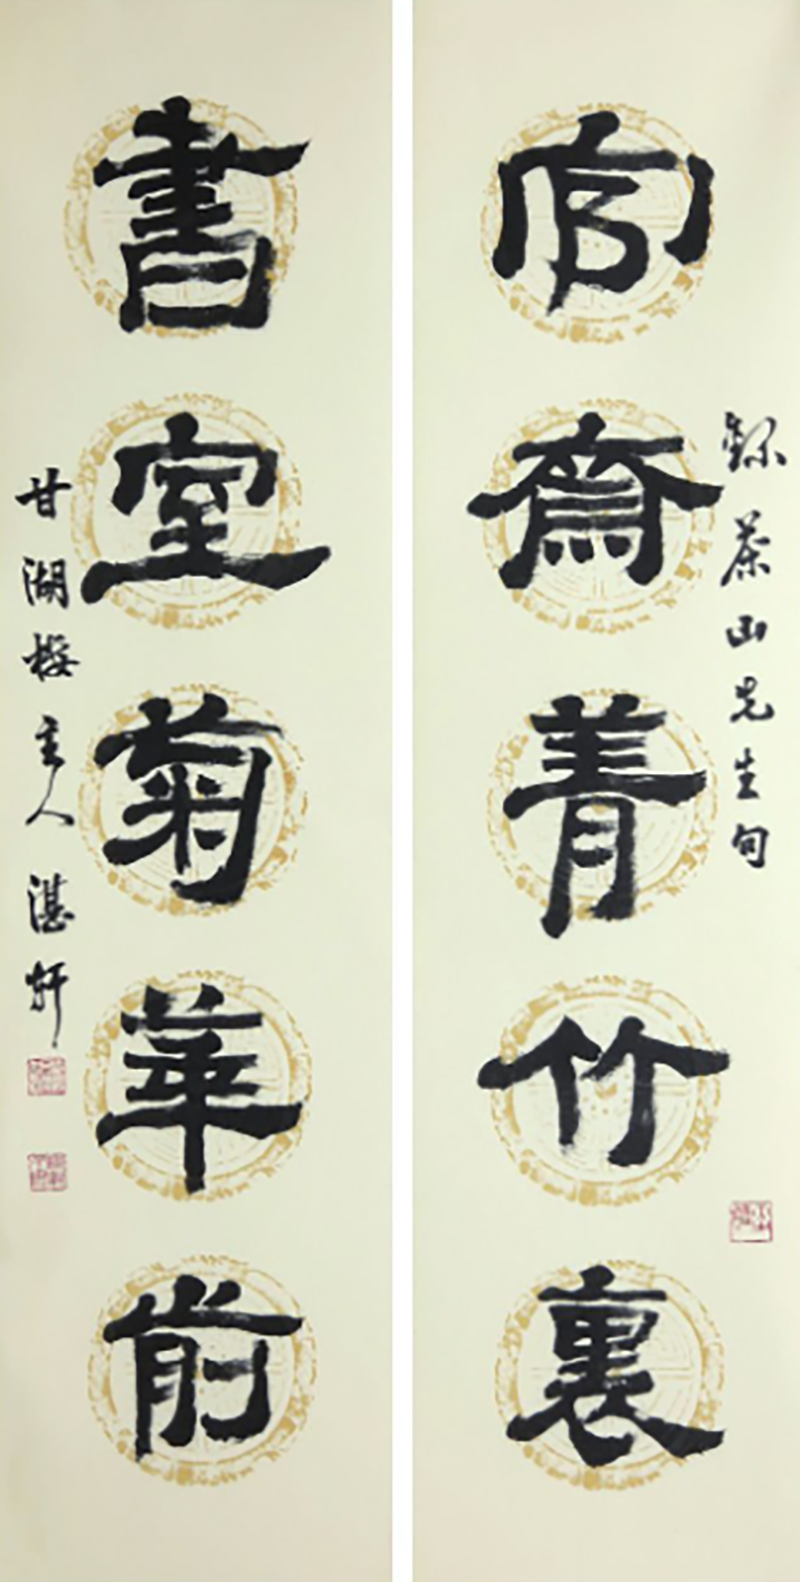 官齋青竹裏
錄茶山先生句
書室菊華前
甘湖樓主人湛軒